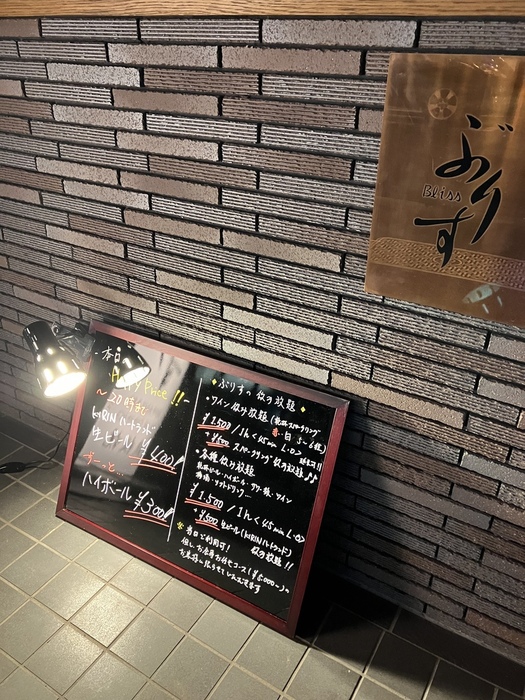 ぶりす
Bliss
本日の
Happy Price!!
～20時まで
KIRIN ハートランド
生ビール ¥400!!
ずーっと…
ハイボール ¥300!!
ぶりすの飲み放題
・ワイン飲み放題
¥1,500/1h<45min L.O>
+¥500 スパークリング飲み放題♪♪
・各種飲み放題
ハイボール・サワー ワイン
ソフトドリンク
¥1,500/1h<45min L.O>
+¥500 生ビール(KIRINハートランド)
飲み放題!!
当日ご利用可!
但し、お任せコース(¥5,000~)の